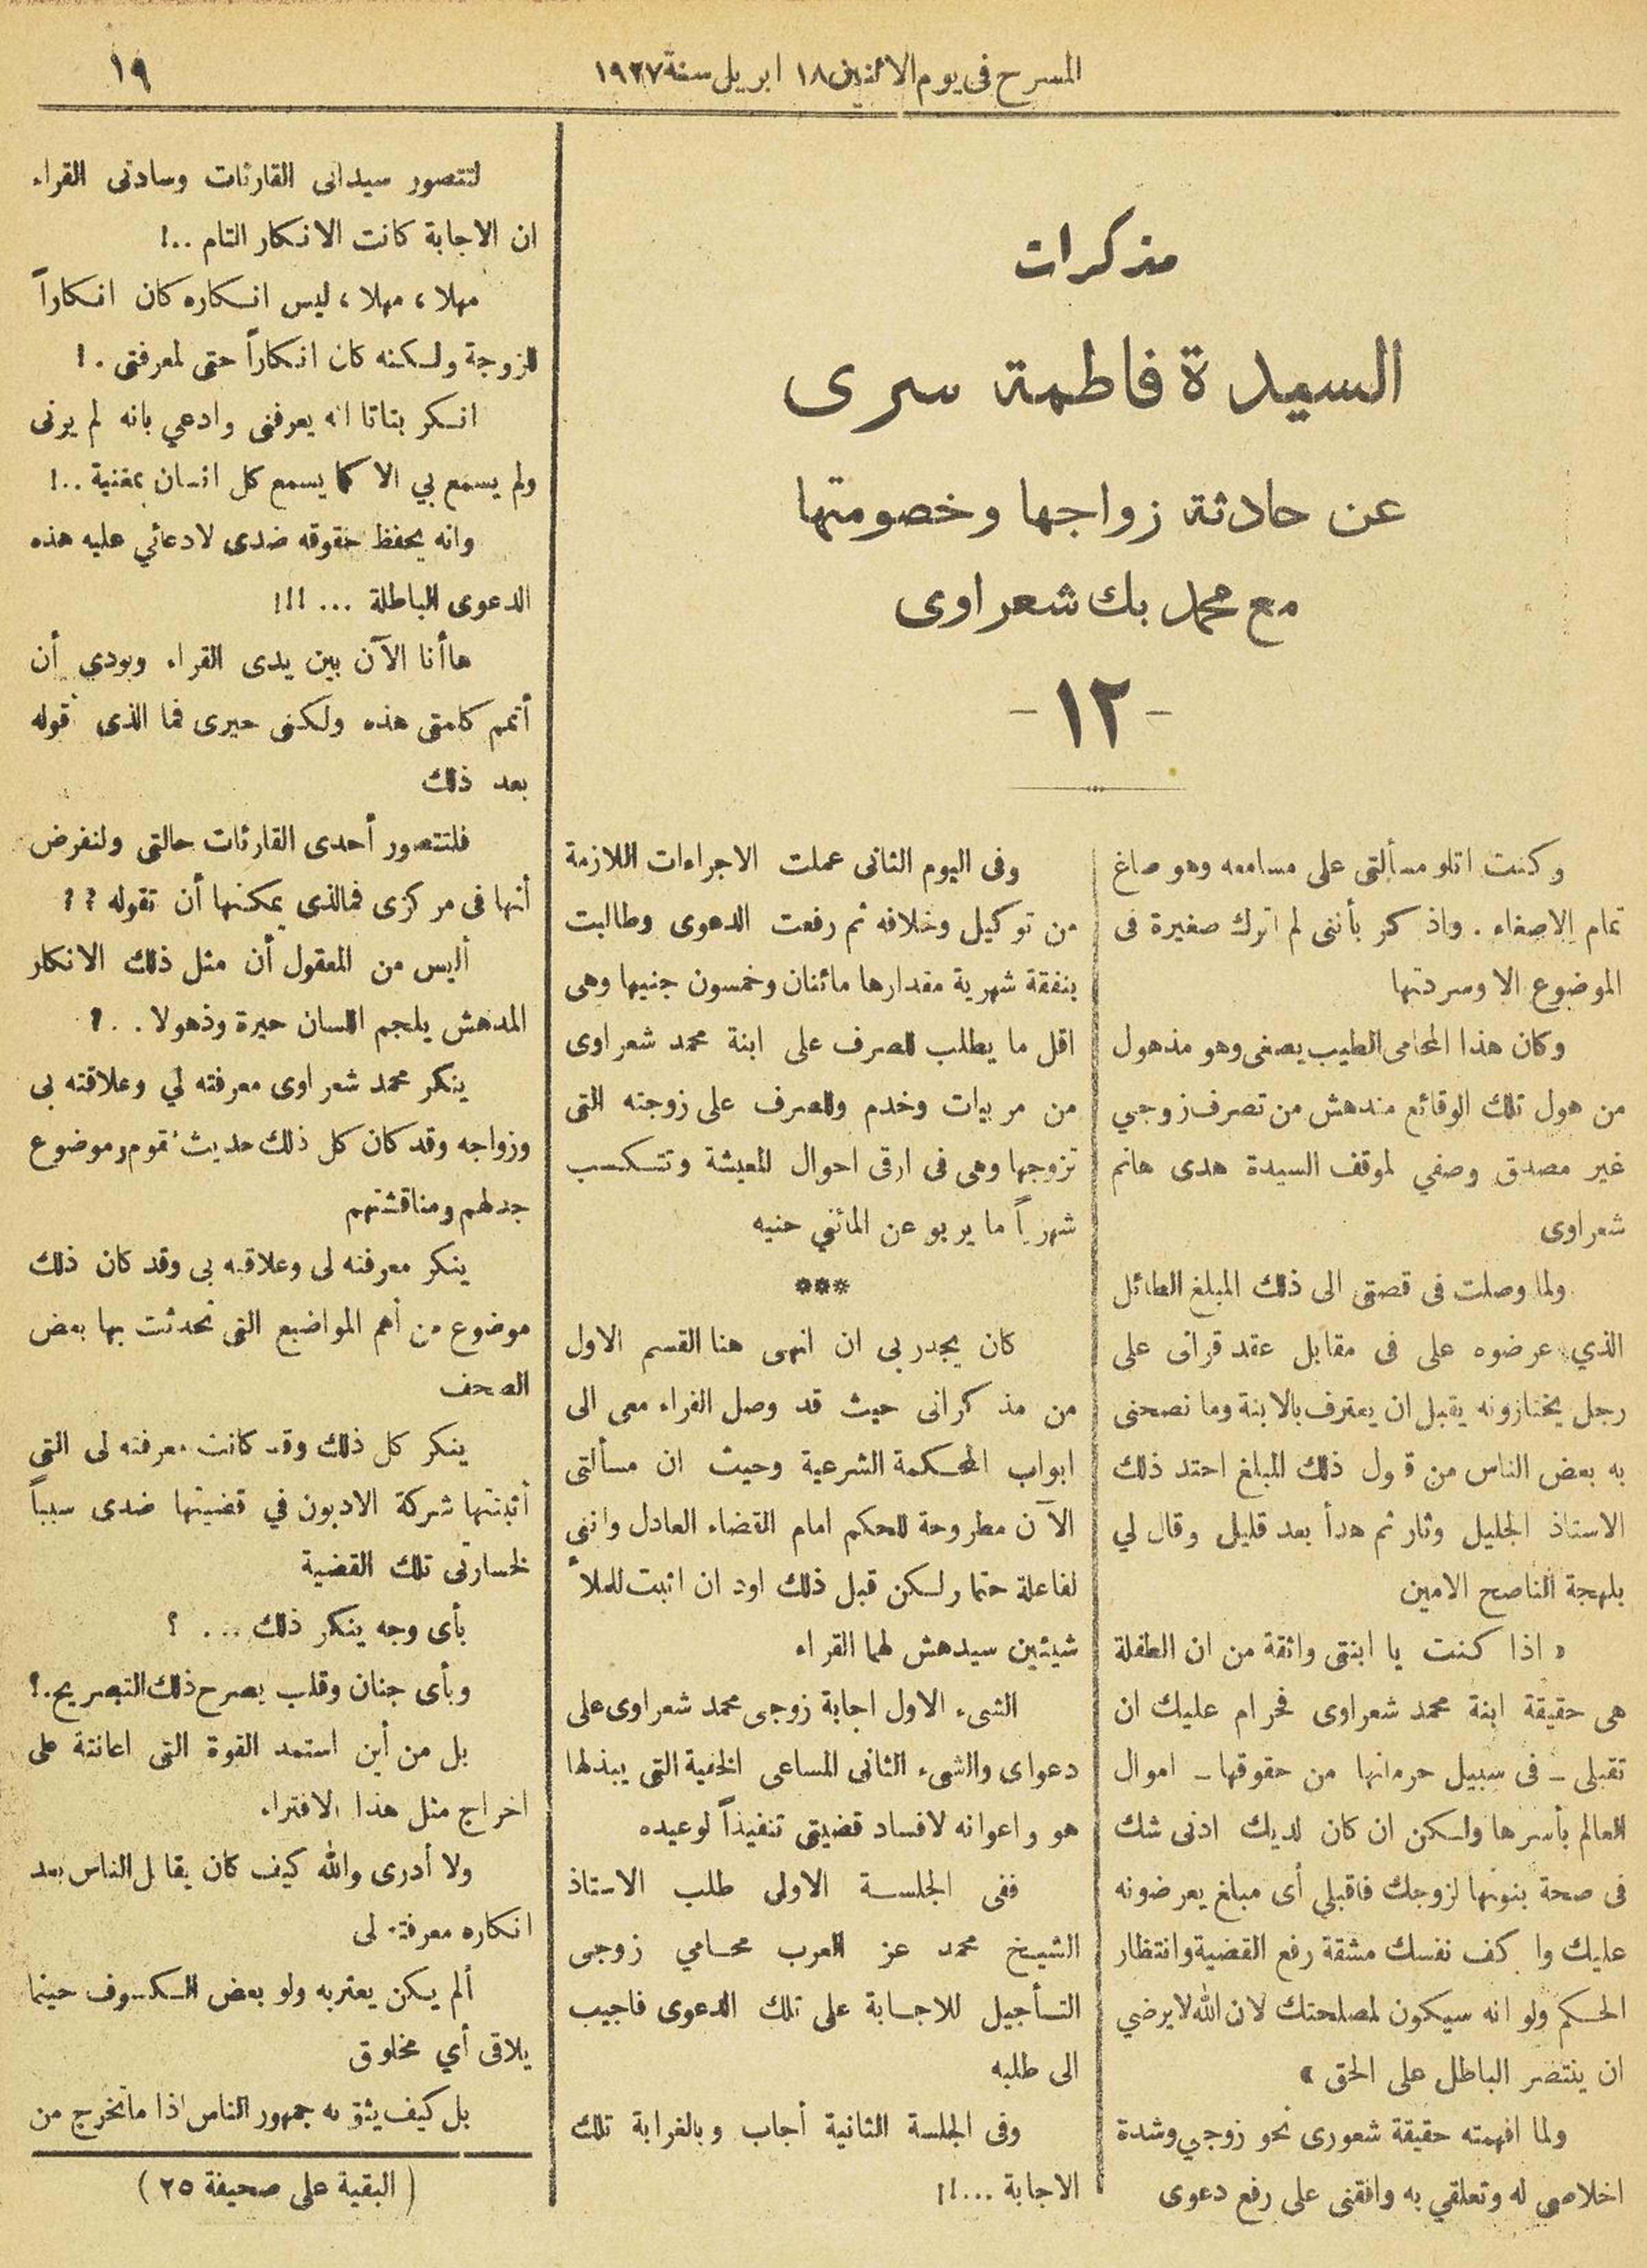 المسرح فى يوم الاثنين ١٨ ابريل سنة ١٩٢٧
١٩
مذكرات
السيدة فاطمة سرى
عن حادثة زواجها وخصومتها
مع محمد بك شعراوى
- ١٢ -
وكنت اتلو مسألتى على مسامعه وهو صاغ
تمام الاصغاء . واذكر بأننى لم اترك صغيرة فى
الموضوع الا وسردتها
وكان هذا المحامى الطيب يصغى وهو مذهول
من هول تلك الوقائع مندهش من تصرف زوجي
غير مصدق وصفي لموقف السيدة هدى هانم
شعراوى
ولما وصلت فى قصتى الى ذلك المبلغ الطائل
الذي عرضوه على فى مقابل عقد قرانى على
رجل يختارونه يقبل ان يعترف بالابنة وما نصحنى
به بعض الناس من قبول ذلك المبلغ احتد ذلك
الاستاذ الجليل وثار ثم هدأ بعد قليل وقال لي
بلهجة الناصح الامين
« اذا كنت يا ابنتى واثقة من ان الطفلة
هى حقيقة ابنة محمد شعراوى فحرام عليك ان
تقبلى ــ فى سبيل حرمانها من حقوقها ــ اموال
العالم بأسرها ولكن ان كان لديك ادنى شك
فى صحة بنوتها لزوجك فاقبلي أى مبلغ يعرضونه
عليك وا كف نفسك مشقة رفع القضية وانتظار
الحكم ولو انه سيكون لمصلحتك لان الله لا يرضي
ان ينتصر الباطل على الحق »
ولما افهمته حقيقة شعورى نحو زوجي وشدة
اخلاصى له وتعلقي به وافقنى على رفع دعوى
وفى اليوم الثانى عملت الاجراءات اللازمة
من توكيل وخلافه ثم رفعت الدعوى وطالبت
بنفقة شهرية مقدارها مائتان وخمسون جنيها وهى
اقل ما يطلب للصرف على ابنة محمد شعراوى
من مربيات وخدم وللصرف على زوجته التى
تزوجها وهى فى ارقى احوال المعيشة وتتكسب
شهرياً ما يربو عن المائتي جنيه
***
كان يجدر بى ان انهى هنا القسم الاول
من مذكراتى حيث قد وصل القراء معى الى
ابواب المحكمة الشرعية وحيث ان مسألتى
الآن مطروحة للحكم امام القضاء العادل واننى
لفاعلة حتما ولكن قبل ذلك اود ان اثبت للملأ
شيئين سيدهش لهما القراء
الشىء الاول اجابة زوجى محمد شعراوى على
دعواى والشىء الثانى المساعى الخفية التى يبذلها
هو واعوانه لافساد قضيتى تنفيذاً لوعيده
ففى الجلسة الاولى طلب الاستاذ
الشيخ محمد عز العرب محامي زوجى
التأجيل للاجابة على تلك الدعوى فاجيب
الى طلبه
وفى الجلسة الثانية أجاب وبالغرابة تلك
الاجابة ...!!
لتتصور سيداتى القارئات وسادتى القراء
ان الاجابة كانت الانكار التام ..!
مهلا ، مهلا ، ليس انكاره كان انكاراً
للزوجة ولكنه كان انكاراً حتى لمعرفتى .!
انكر بتاتا انه يعرفنى وادعي بانه لم يرنى
ولم يسمع بي الا كما يسمع كل انسان بمغنية ..!
وانه يحفظ حقوقه ضدى لادعائي عليه هذه
الدعوى الباطلة ... !!!
هاأنا الآن بين يدى القراء وبودي أن
أتمم كلمتى هذه ولكنى حيرى فما الذى أقوله
بعد ذلك
فلتتصور أحدى القارئات حالتى ولنفرض
أنها فى مركزى فمالذي يمكنها أن تقوله ؟؟
أليس من المعقول أن مثل ذلك الانكار
المدهش يلجم اللسان حيرة وذهولا . . ؟
ينكر محمد شعراوى معرفته لي وعلاقته بى
وزواجه وقد كان كل ذلك حديث قوم وموضوع
جدلهم ومناقشتهم
ينكر معرفته لى وعلاقته بى وقد كان ذلك
موضوع من أهم المواضيع التى تحدثت بها بعض
الصحف
ينكر كل ذلك وقد كانت معرفته لى التى
أثبتتها شركة الاديون في قضيتها ضدى سبباً
لخسارتى تلك القضية
بأى وجه ينكر ذلك ... ؟
وبأى جنان وقلب يصرح ذلك التصريح .؟
بل من أين استمد القوة التى اعانته على
اخراج مثل هذا الافتراء
ولا أدرى والله كيف كان يقابل الناس بعد
انكاره معرفته لى
ألم يكن يعتريه ولو بعض الكسوف حينما
يلاقى أي مخلوق
بل كيف يثق به جمهور الناس اذا ماتخرج من
( البقية على صحيفة ٢٥ )